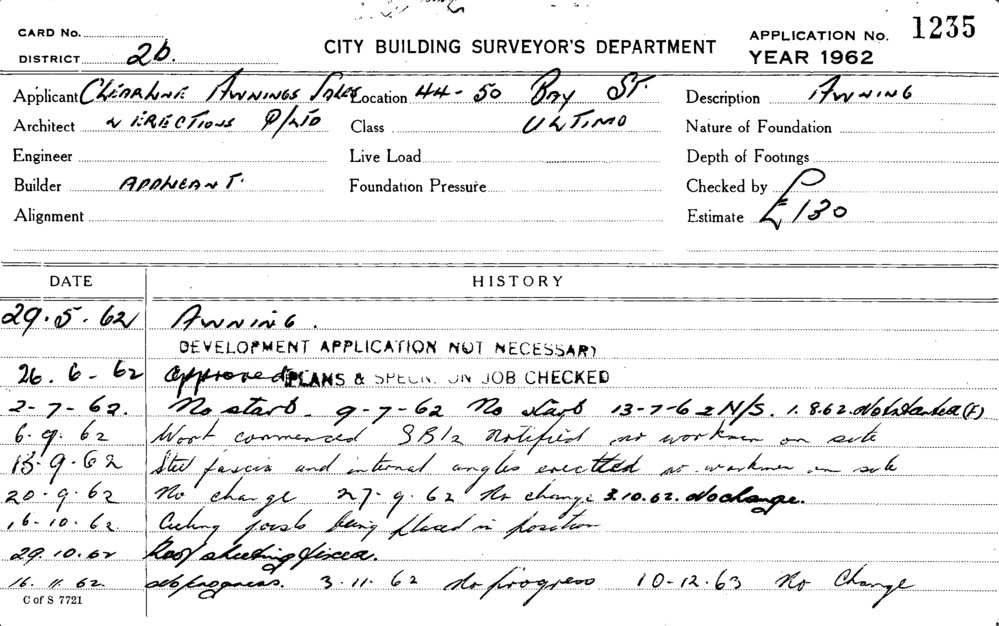 CARD No.
DISTRICT 2b.
CITY BUILDING SURVEYOR'S DEPARTMENT
APPLICATION No. 1235
YEAR 1962
Applicant Clearline Awnings Sales Location 44-50 Bay St. Description Awning
Architect N Erections P/Ltd Class Ultimo Nature of Foundation
Engineer Live Load Depth of Footings
Builder Applicant. Foundation Pressure Checked by
Alignment Estimate £130
DATE HISTORY
29.5.62 Awning.
DEVELOPMENT APPLICATION NOT NECESSARY
26.6-62 Approved PLANS & SPECN. ON JOB CHECKED
2-7-62. No start. 9-7-62 No start 13-7-62 N/S. 1.8.62. Not started (F)
6.9.62 Work commenced SB12 notified no workmen on site
13-9-62 Steel fascia and internal angles erected no workmen on site
20.9.62 No change 27-9.62 No change 3.10.62. No change.
16-10.62. Ceiling joists being placed in position
29.10.62 Roof sheeting fixed.
16.11.62. No progress. 3-11-62 No progress 10-12.63 No Change
C of S 7721